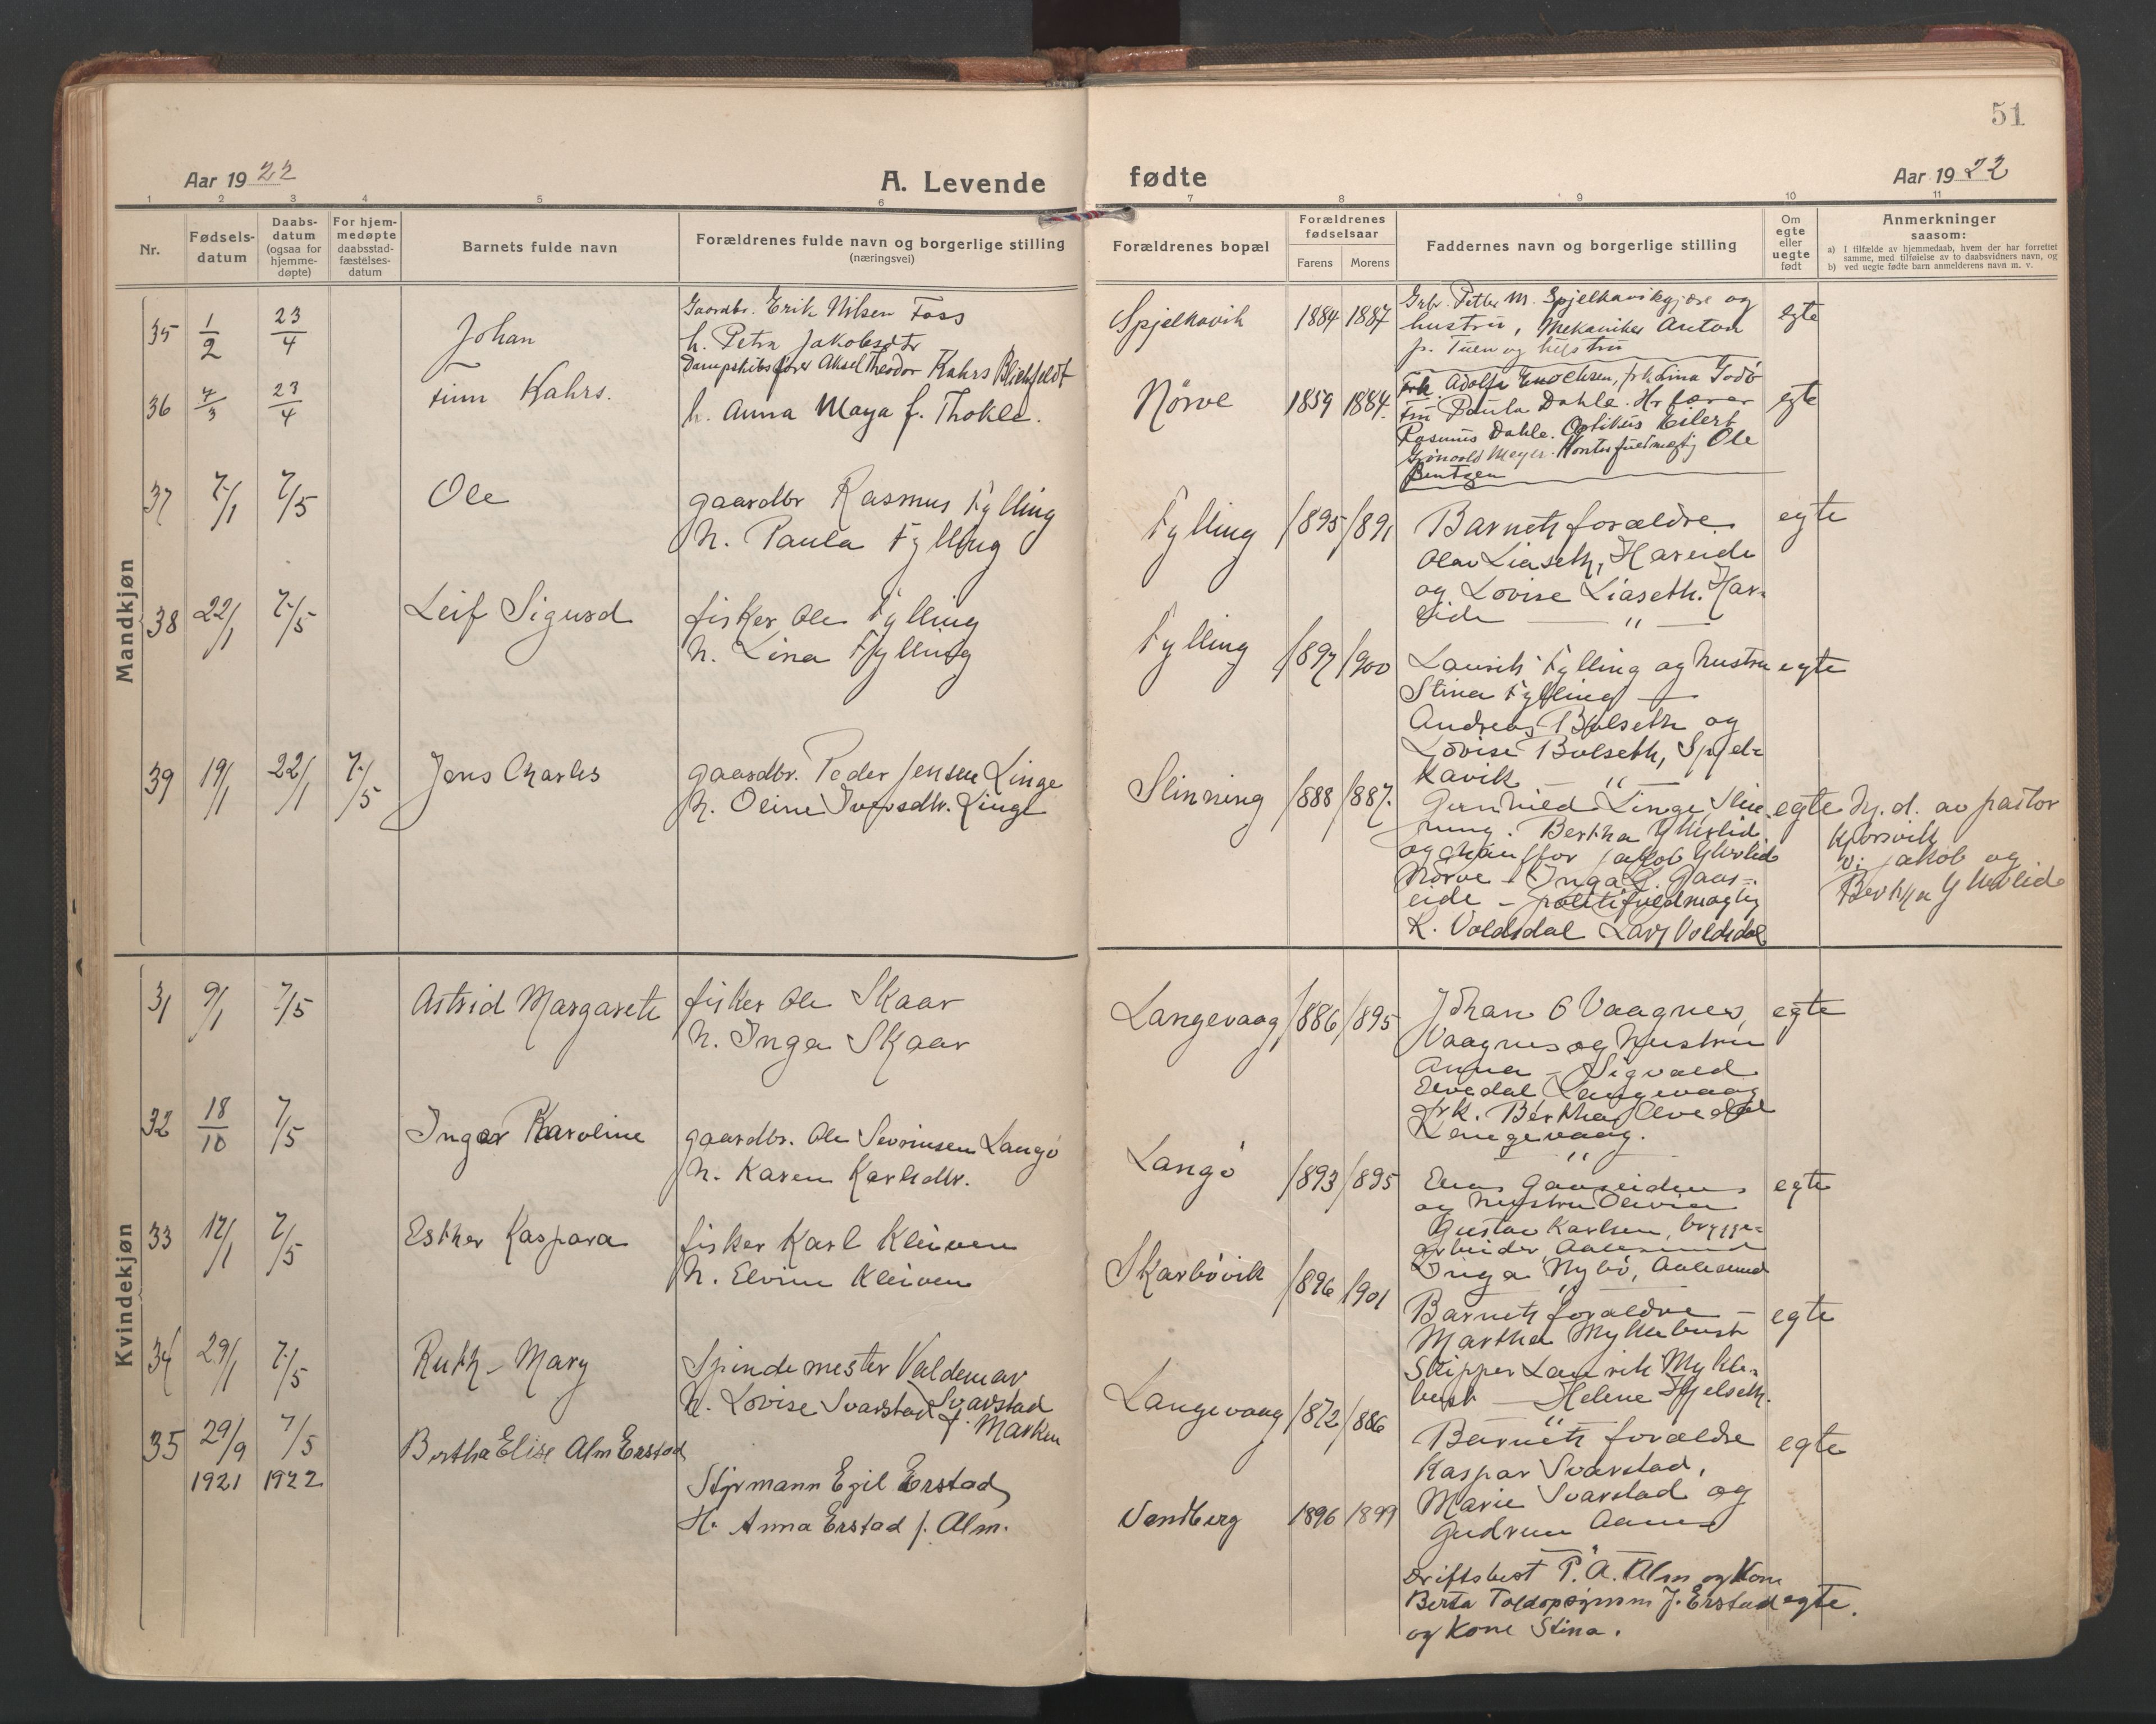 51
Aar 1922
A. Levende
fødte
Aar 1922
1 2 3 4 5 6 7 8 9 10 11
Nr.
Fødsels-
datum
Daabs-
datum
(ogsaa for
hjemme-
døpte)
For hjem-
medøpte
daabsstad-
fæstelses-
datum
Barnets fulde navn
Forældrenes fulde navn og borgerlige stilling
(næringsvei)
Forældrenes bopæl
Forældrenes
fødselsaar
Farens Morens
Faddernes navn og borgerlige stilling
Om
egte
eller
uegte
født
Anmerkninger
saasom:
a) I tilfælde av hjemmedaab, hvem der har forrettet
samme, med tilføielse av to daabsvidners navn, og
b) ved uegte fødte barn anmelderens navn m. v.
Mandkjøn
35 1/2 23/4 Johan
Gaardbr. Erik Nilsen Foss
h. Petra Jakobsdtr
Spjelkavik 1884 1887
Grbr. Petter M. Spjelkavikgjære og
hustru, Mekaniker Anton
egte
36 7/3 23/4 Finn Kahrs.
Dampskibsfører Aksel Theodor Kahrs Blichfeldt
h. Anna Maya f. Thokle.
Nörve 1859 1884.
Frk. Adolfa Enochsen, frk Lina Godö
Fru Paula Dahle. Hr fører
Rasmus Dahle. Optikus Eilert
Grönvold Meyer. Kontorfuldmegtig Ole
Bentzen
egte
37 7/1 7/5 Ole
gaardbr Rasmus Fylling
h. Paula Fylling
Fylling 1895 1891
Barnets forældre
Olav Liaseth, Hareide
og Lovise Liaseth. Har-
eide — " —
egte
38 22/1 7/5 Leif Sigurd
fisker Ole Fylling
h. Lina Fylling
Fylling 1897 1900
Laurits Fylling og hustru
Stina Fylling —
Andreas Bolseth og
Lovise Bolseth, Spjel-
kavik — " —
egte
39 19/1 22/1 7/5 Jens Charles
gaardbr. Peder Jensen Linge
h. Oline Iversdtr. Linge
Slinning 1888 1887.
Gunhild Linge, Slin-
ning. Bertha Ytterlid
og chauffør Jakob Ytterlid
Nörve – Inga G. Gaas-
eide – politifuldmægtig
K. Voldsdal Lars Voldsdal
egte
Hj. d. av pastor
Kjorsvik
v. Jakob og
Bertha Ytterlid
Kvindekjøn
31 9/1 7/5 Astrid Margarete
fisker Ole Skaar
h. Inga Skaar
Langevaag 1886 1895
Johan O Vaagnes,
Vaagnes og hustru
Anna – Sigvald
Elvedal Langevaag
frk. Bertha Elvedal
Langevaag.
— " —
egte
32 18/10 7/5 Inger Karoline
gaardbr. Ole Sevrinsen Langö
h. Karen Karlsdtr.
Langö 1893 1895
og hustru Olivia
Gustav Karlsen, brygge-
arbeider, Aalesund
Inga Nybö, Aalesund
— " —
egte
33 17/1 7/5 Esther Kaspara
fisker Karl Kleiven
h. Elvine Kleiven
Skarbövik 1896 1901
Barnets forældre –
Martha Myklebust
Skipper Laurits Mykle-
bust — Helene Hjelseth.
— " —
egte
34 29/1 7/5 Ruth – Mary
Spindemester Valdemar
Svarstad
h. Lovise Svarstad f. Marken
Langevaag 1872 1886
Barnets forældre
Kaspar Svarstad,
Marie Svarstad og
Gudrun Aam
— " —
egte
35 29/9 1921 7/5 1922 Bertha Elise Alm Erstad
Styrmann Egil Erstad
H. Anna Erstad f. Alm.
Sandberg 1896 1899
Driftsbest P. A. Alm og Kone
Berta Toldopsynsm J. Erstad
og Kone Stina.
egte.